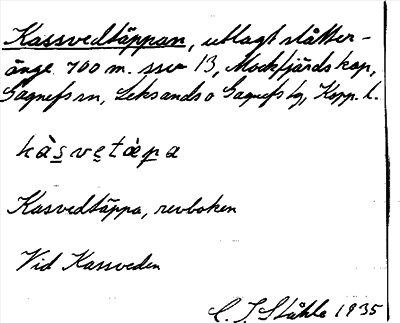 Kassvedtäppan, utlagt slåtter-
änge 700 m. ssv 13, Mockfjärds kap,
Gagnefs sn, Leksands o Gagnefs tg, Kopp. l.
kàsvetàpa
Kasvedtäppa, revboken
Vid Kassveden
C. I. Ståhle 1935